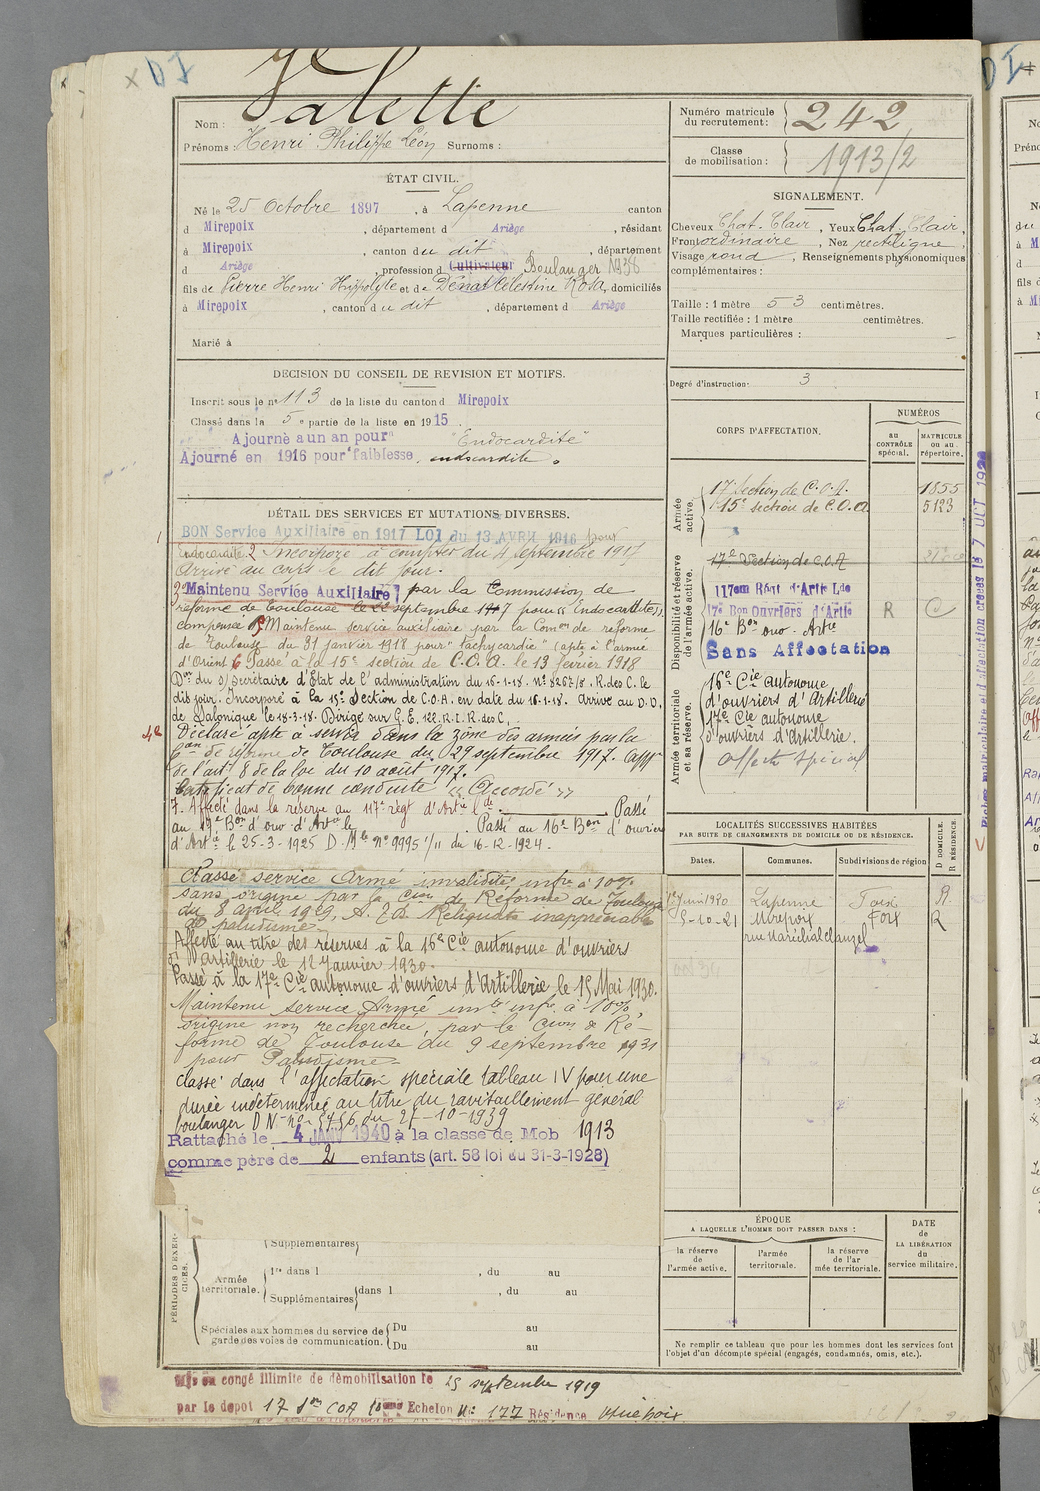 x DI
Valette
Nom :
Prénoms : Henri Philippe Léon Surnoms :
Numéro matricule du recrutement : 242
Classe de mobilisation : 1913/2
ÉTAT CIVIL.
Né le 25 Octobre 1897, à Lapenne canton
d Mirepoix, département d Ariège, résidant
à Mirepoix, canton du dit, département
d Ariège, profession d Cultivateur Boulanger
fils de Pierre Henri Hippolyte et de Dénat Célestine Rosa, domiciliés
à Mirepoix, canton du dit, département d Ariège
Marié à
SIGNALEMENT.
Cheveux Chat. Clair, Yeux Chat. Clair,
Front ordinaire, Nez rectiligne,
Visage rond, Renseignements physionomiques
complémentaires :
Taille : 1 mètre 53 centimètres.
Taille rectifiée : 1 mètre centimètres.
Marques particulières :
Degré d'instruction. 3
DECISION DU CONSEIL DE REVISION ET MOTIFS.
Inscrit sous le n° 113 de la liste du canton d Mirepoix
Classé dans la 5e partie de la liste en 1915.
Ajourné a un an pour "Endocardite"
Ajourné en 1916 pour faiblesse, endocardite.
CORPS D'AFFECTATION.
NUMÉROS
au CONTRÔLE spécial.
MATRICULE ou au répertoire.
Armée active.
17e Section de C.O.A. 1855
15e section de C.O.A 5123
Disponibilité et réserve de l'armée active.
17e Section de C.O.A
117em Régt d'Artie Lde
17e Bon Ouvriers d'Artie R C
16e Bon ouv. Artie
Sans Affectation
Armée territoriale et sa réserve.
16e Cie autonome
d'ouvriers d'Artillerie
17e Cie autonome
d'ouvriers d'artillerie.
Affecté spécial
DÉTAIL DES SERVICES ET MUTATIONS DIVERSES.
BON Service Auxiliaire en 1917 LOI du 13 AVRIL 1916 pour
Endocardite 2 Incorporé à compter du 4 septembre 1917
Arrivé au corps le dit jour.
3° Maintenu Service Auxiliaire, par la Commission de
réforme de Toulouse le 22 septembre 1917 pour "Endocardite"
compensée 5 Maintenu service auxiliaire par la Comon de réforme
de Toulouse du 31 janvier 1918 pour "Tachycardie" (apte à l'armée
d'Orient 6 Passé à la 15e section de C.O.A. le 13 février 1918
Don du S/ Secrétaire d'Etat de l'administration du 16-1-18. n° 8267/8. R.des C. le
dit jour. Incorporé à la 15e Section de C.O.A. en date du 16-1-18. Arrivé au D.O.
de Salonique le 18-3-18. Dirigé sur G.E. 122 R.I. R. des C.
4° Déclaré apte à servir dans la zone des armées par la
Con de réforme de Toulouse du 29 septembre 1917. app
de l'art. 8 de la loi du 10 août 1917.
Certificat de bonne conduite "Accordé"
7. Affecté dans la réserve au 117e régt d'Artie Lde Passé
au 17e Bon d'ouv. d'Artie le Passé au 16e Bon d'ouvriers
d'Artie le 25-3-1925 D. Mle n° 9995 1/11 du 16-12-1924.
Classé service Armé invalidité infre à 10%
sans origine par la Cion de Réforme de Toulouse
du 8 avril 1929, Reliquats inappréciables
de paludisme
Affecté au titre des réserves à la 16e Cie autonome d'ouvriers
d'artillerie le 12 Janvier 1930.
Passé à la 17e Cie autonome d'ouvriers d'Artillerie le 15 Mai 1930.
Maintenu service Armé invté infre à 10%
origine non recherchée, par la Cion de Ré-
forme de Toulouse du 9 septembre 1931
pour Paludisme
classé dans l'affectation spéciale tableau IV pour une
durée indéterminée au titre du ravitaillement général
boulanger D.N. n° 5456 du 27-10-1939
Rattaché le 4 JANV 1940 à la classe de Mob 1913
comme père de 2 enfants (art. 58 loi du 31-3-1928)
LOCALITÉS SUCCESSIVES HABITÉES
PAR SUITE DE CHANGEMENTS DE DOMICILE OU DE RÉSIDENCE.
Dates. Communes. Subdivisions de région
D DOMICILE. R RÉSIDENCE
1er Juin 1920 Lapenne Foix R.
5-10-21 Mirepoix Foix R
rue Maréchal Clauzel
PÉRIODES D'EXERCICES.
Supplémentaires
Armée territoriale.
1re dans l , du au
Supplémentaires dans l , du au
Spéciales aux hommes du service de garde des voies de communication.
Du au
Du au
ÉPOQUE
A LAQUELLE L'HOMME DOIT PASSER DANS :
la réserve de l'armée active.
l'armée territoriale.
la réserve de l'armée territoriale.
DATE DE LA LIBÉRATION du service militaire.
Ne remplir ce tableau que pour les hommes dont les services font
l'objet d'un décompte spécial (engagés, condamnés, omis, etc.).
Mis en congé illimité de démobilisation le 25 septembre 1919
par le dépôt 17 Son COA Echelon N° 177 Résidence Mirepoix